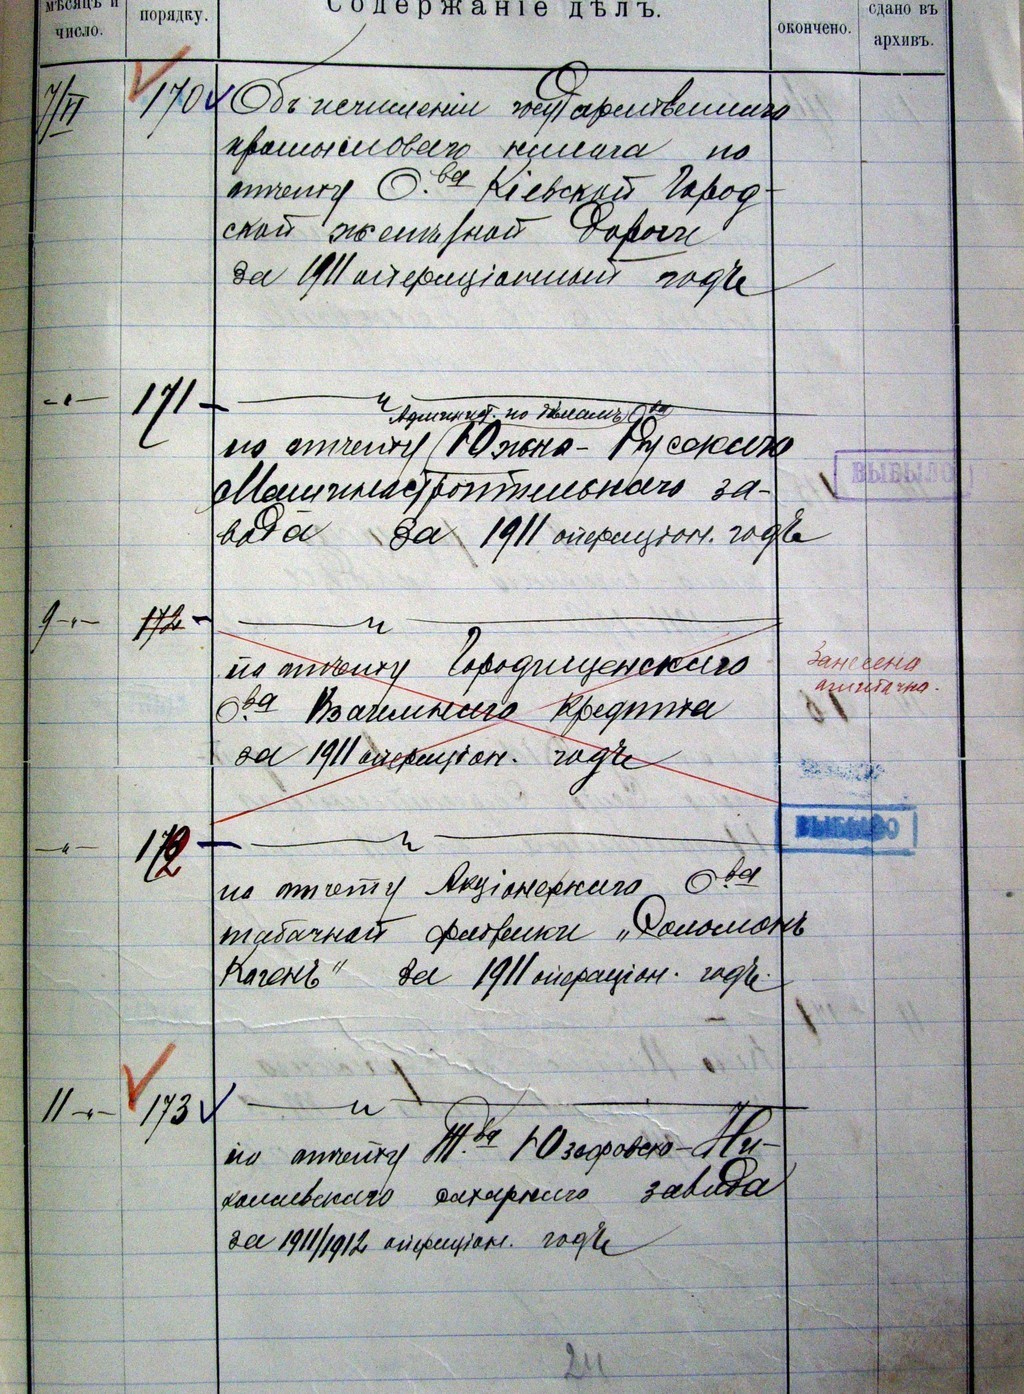 мѣсяцъ и число.
порядку.
Содержаніе дѣлъ.
окончено.
сдано въ архивъ.
7/VI 170 Объ исчисленіи государственнаго
промысловаго налога по
отчету О.ва Кіевской Город-
ской желѣзной дороги
за 1911 операціонный годъ
-„- 171 — „ —
Админист. по дѣламъ О-ва
по отчету Южно-Русскаго
Машиностроительнаго за-
вода за 1911 операціон. годъ
ВЫБЫЛО
9 -„- 172 — „ —
по отчету Городищенскаго
О-ва Взаимнаго Кредита
за 1911 операціон. годъ
Занесено
ошибочно.
ВЫБЫЛО
-„- 172 — „ —
по отчету Акціонернаго О-ва
табачной фабрики „Соломонъ
Когенъ" за 1911 операціон. годъ.
11 -„- 173 — „ —
по отчету Т.ва Юзефовско-Ни-
колаевскаго сахарнаго завода
за 1911/1912 операціон. годъ